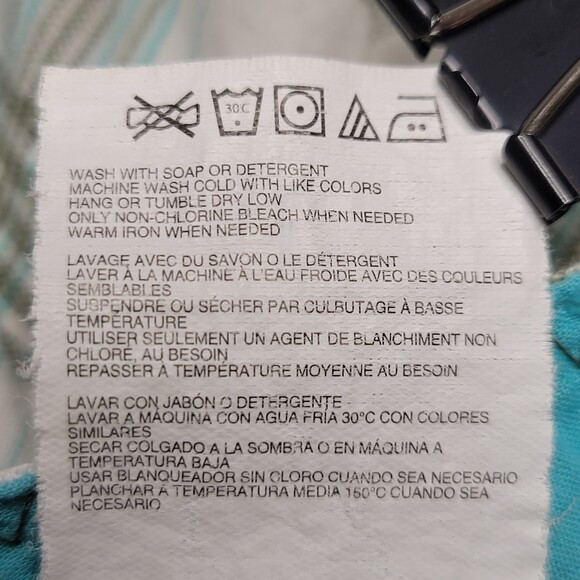 30C
WASH WITH SOAP OR DETERGENT
MACHINE WASH COLD WITH LIKE COLORS
HANG OR TUMBLE DRY LOW
ONLY NON-CHLORINE BLEACH WHEN NEEDED
WARM IRON WHEN NEEDED
LAVAGE AVEC DU SAVON O LE DÉTERGENT
LAVER À LA MACHINE À L'EAU FROIDE AVEC DES COULEURS
SEMBLABLES
SUSPENDRE OU SÉCHER PAR CULBUTAGE À BASSE
TEMPÉRATURE
UTILISER SEULEMENT UN AGENT DE BLANCHIMENT NON
CHLORE, AU BESOIN
REPASSER À TEMPÉRATURE MOYENNE AU BESOIN
LAVAR CON JABÓN O DETERGENTE
LAVAR A MÁQUINA CON AGUA FRIA 30°C CON COLORES
SIMILARES
SECAR COLGADO A LA SOMBRA O EN MÁQUINA A
TEMPERATURA BAJA
USAR BLANQUEADOR SIN CLORO CUANDO SEA NECESARIO
PLANCHAR A TEMPERATURA MEDIA 150°C CUANDO SEA
NECESARIO